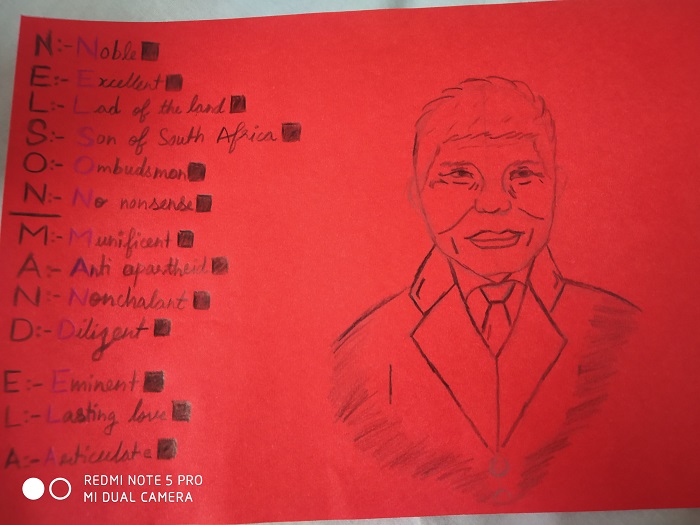 N:- Noble
E:- Excellent
L:- Lad of the land
S:- Son of South Africa
O:- Ombudsman
N:- No nonsense
M:- Munificent
A:- Anti apartheid
N:- Nonchalant
D:- Diligent
E:- Eminent
L:- Lasting love
A:- Articulate
REDMI NOTE 5 PRO
MI DUAL CAMERA